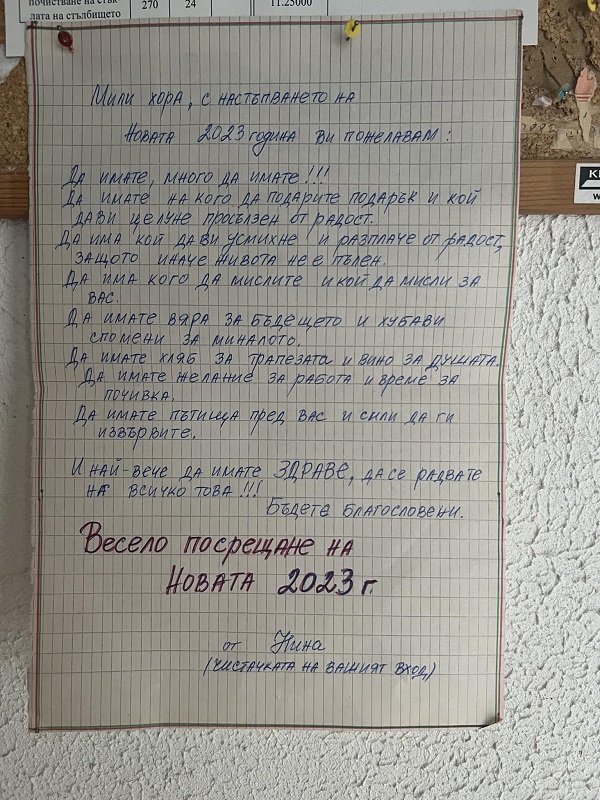 почистване на стък-
лата на стълбището
270
24
11.25000
Мили хора, с настъпването на
Новата 2023 година Ви пожелавам:
Да имате, много да имате!!!
Да имате на кого да подарите подарък и кой
да Ви целуне просълзен от радост.
Да има кой да Ви усмихне и разплаче от радост,
защото иначе живота не е пълен.
Да има кого да мислите и кой да мисли за
Вас.
Да имате вяра за бъдещето и хубави
спомени за миналото.
Да имате хляб за трапезата и вино за душата.
Да имате желание за работа и време за
почивка.
Да имате пътища пред Вас и сили да ги
извървите.
И най-вече да имате ЗДРАВЕ, да се радвате
на всичко това!!!
Бъдете благословени.
Весело посрещане на
Новата 2023 г.
от Нина
(чистачката на вашият вход)